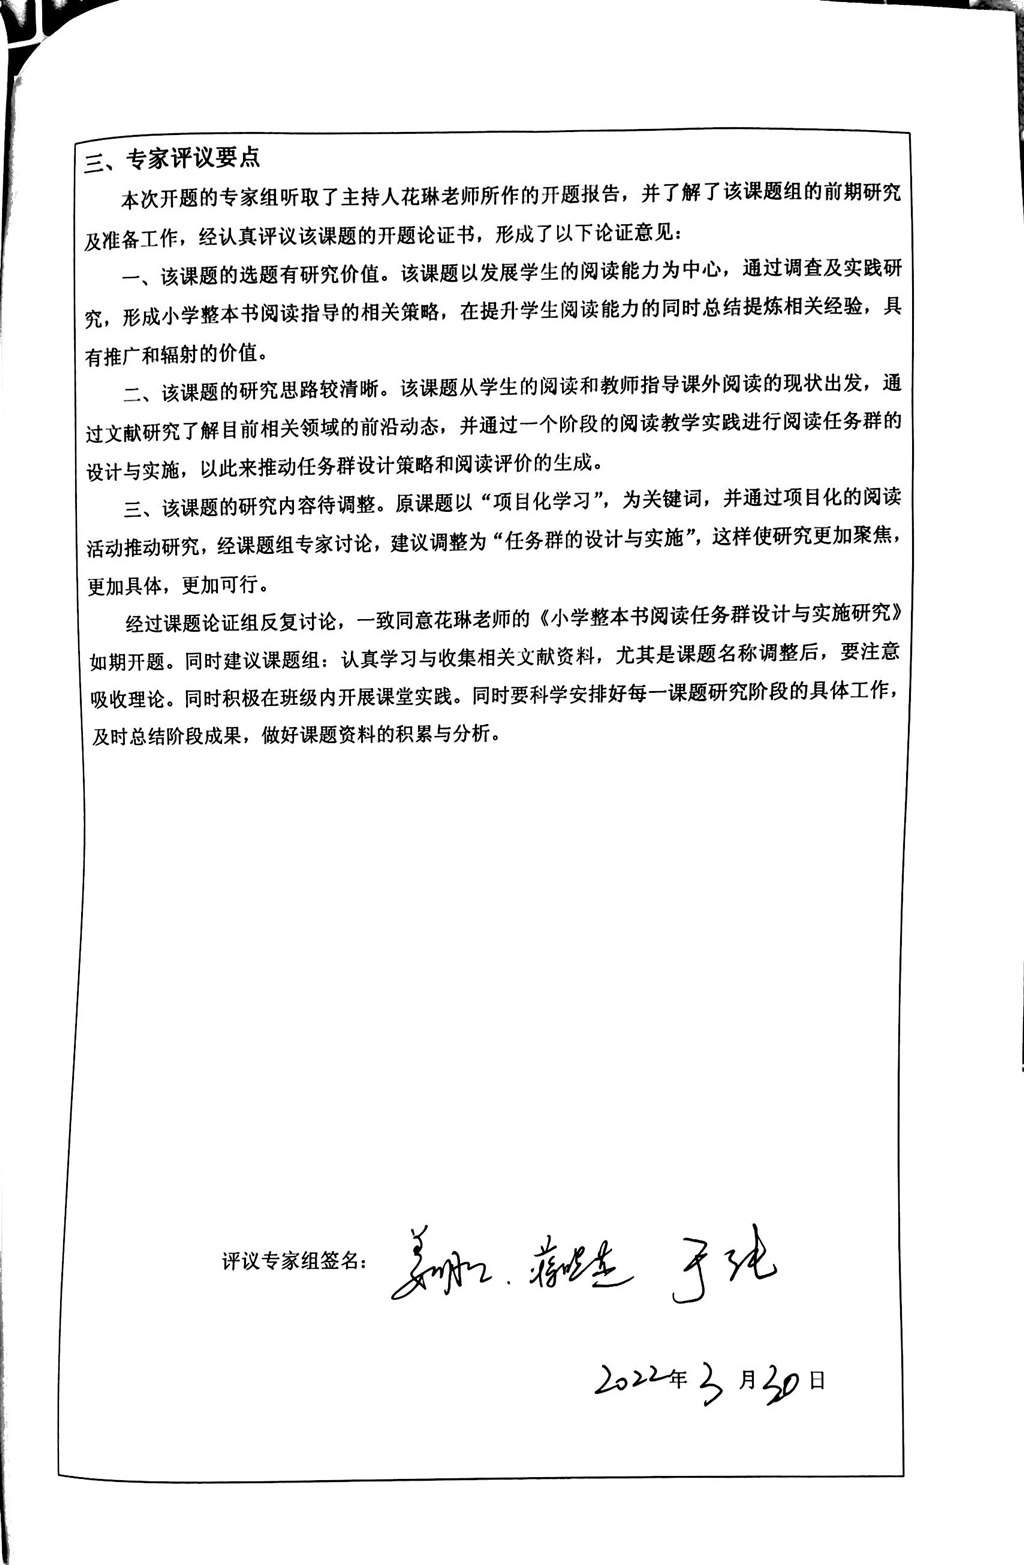 三、专家评议要点
本次开题的专家组听取了主持人花琳老师所作的开题报告，并了解了该课题组的前期研究
及准备工作，经认真评议该课题的开题论证书，形成了以下论证意见：
一、该课题的选题有研究价值。该课题以发展学生的阅读能力为中心，通过调查及实践研
究，形成小学整本书阅读指导的相关策略，在提升学生阅读能力的同时总结提炼相关经验，具
有推广和辐射的价值。
二、该课题的研究思路较清晰。该课题从学生的阅读和教师指导课外阅读的现状出发，通
过文献研究了解目前相关领域的前沿动态，并通过一个阶段的阅读教学实践进行阅读任务群的
设计与实施，以此来推动任务群设计策略和阅读评价的生成。
三、该课题的研究内容待调整。原课题以“项目化学习”，为关键词，并通过项目化的阅读
活动推动研究，经课题组专家讨论，建议调整为“任务群的设计与实施”，这样使研究更加聚焦，
更加具体，更加可行。
经过课题论证组反复讨论，一致同意花琳老师的《小学整本书阅读任务群设计与实施研究》
如期开题。同时建议课题组：认真学习与收集相关文献资料，尤其是课题名称调整后，要注意
吸收理论。同时积极在班级内开展课堂实践。同时要科学安排好每一课题研究阶段的具体工作，
及时总结阶段成果，做好课题资料的积累与分析。
评议专家组签名：
2022年3月30日